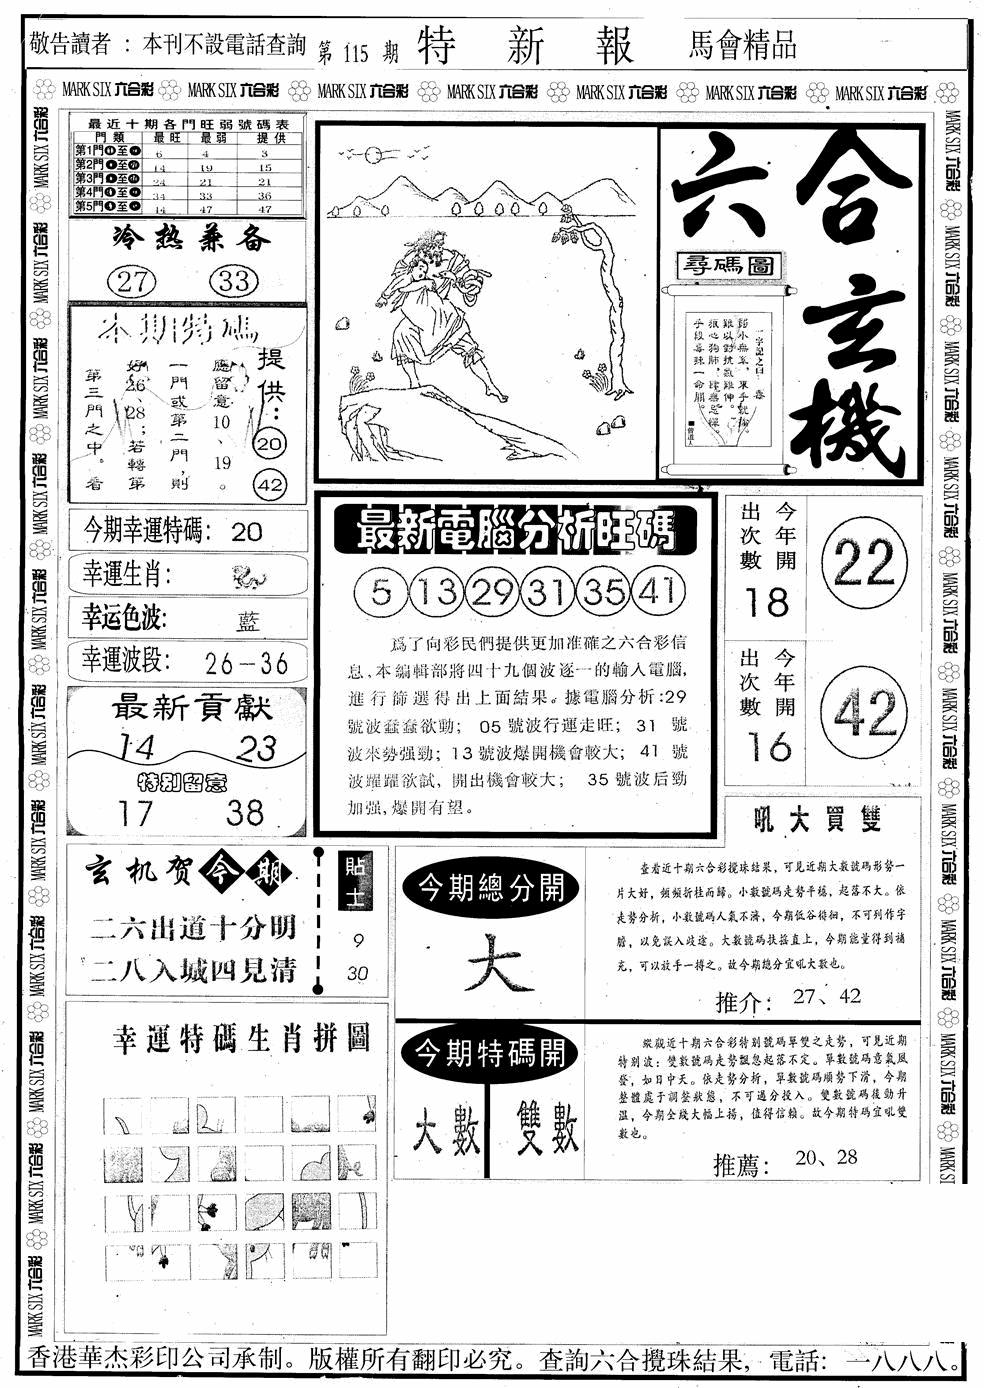 敬告讀者：本刊不設電話查詢 第115期 特新報 馬會精品
MARK SIX 六合彩 MARK SIX 六合彩 MARK SIX 六合彩 MARK SIX 六合彩 MARK SIX 六合彩 MARK SIX 六合彩 MARK SIX 六合彩
最近十期各門旺弱號碼表
門類 最旺 最弱 提供
第1門 至 6 4 3
第2門 至 14 19 15
第3門 至 24 21 21
第4門 至 34 33 36
第5門 至 14 47 47
冷热兼备
27 33
本期特碼
提供：
20
42
應留意10、19。
一門或第二門，則
好26、28；若轉第
第三門之中。看
今期幸運特碼：20
幸運生肖：
幸运色波：藍
幸運波段：26-36
最新貢獻
14 23
特别留意
17 38
六合玄機
尋碼圖
一字記之曰：毒
手段毒珠一命關。
■曾道人
最新電腦分析旺碼
5 13 29 31 35 41
爲了向彩民們提供更加准確之六合彩信
息,本編輯部將四十九個波逐一的輸入電腦,
進行篩選得出上面結果。據電腦分析:29
號波蠢蠢欲動； 05 號波行運走旺； 31 號
波來勢强勁；13號波爆開機會較大； 41 號
波躍躍欲試，開出機會較大； 35號波后勁
加强,爆開有望。
今年開
出次數
18
22
今年開
出次數
16
42
吼大買雙
玄机贺今期
二六出道十分明
二八入城四見清
貼士
9
30
今期總分開
大
查看近十期六合彩攪珠結果，可見近期大數號碼形勢一
片大好，頻頻折桂而歸。小數號碼走勢平穩，起落不大。依
走勢分析，小數號碼人氣不濟，今期低谷徘徊，不可列作字
膽，以免誤入歧途。大數號碼扶搖直上，今期能量得到補
充，可以放手一搏之。故今期總分宜吼大數也。
推介：27、42
今期特碼開
大數 雙數
縱觀近十期六合彩特別號碼單雙之走勢，可見近期
特别波：雙數號碼走勢飄忽起落不定。單數號碼意氣風
發，如日中天。依走勢分析，單數號碼順勢下滑，今期
整體處于調整狀態，不可過分投入。雙數號碼後勁升
温，今期全綫大幅上揚，值得信賴。故今期特碼宜吼雙
數也。
推薦：20、28
幸運特碼生肖拼圖
香港華杰彩印公司承制。版權所有翻印必究。查詢六合攪珠結果，電話：一八八八。